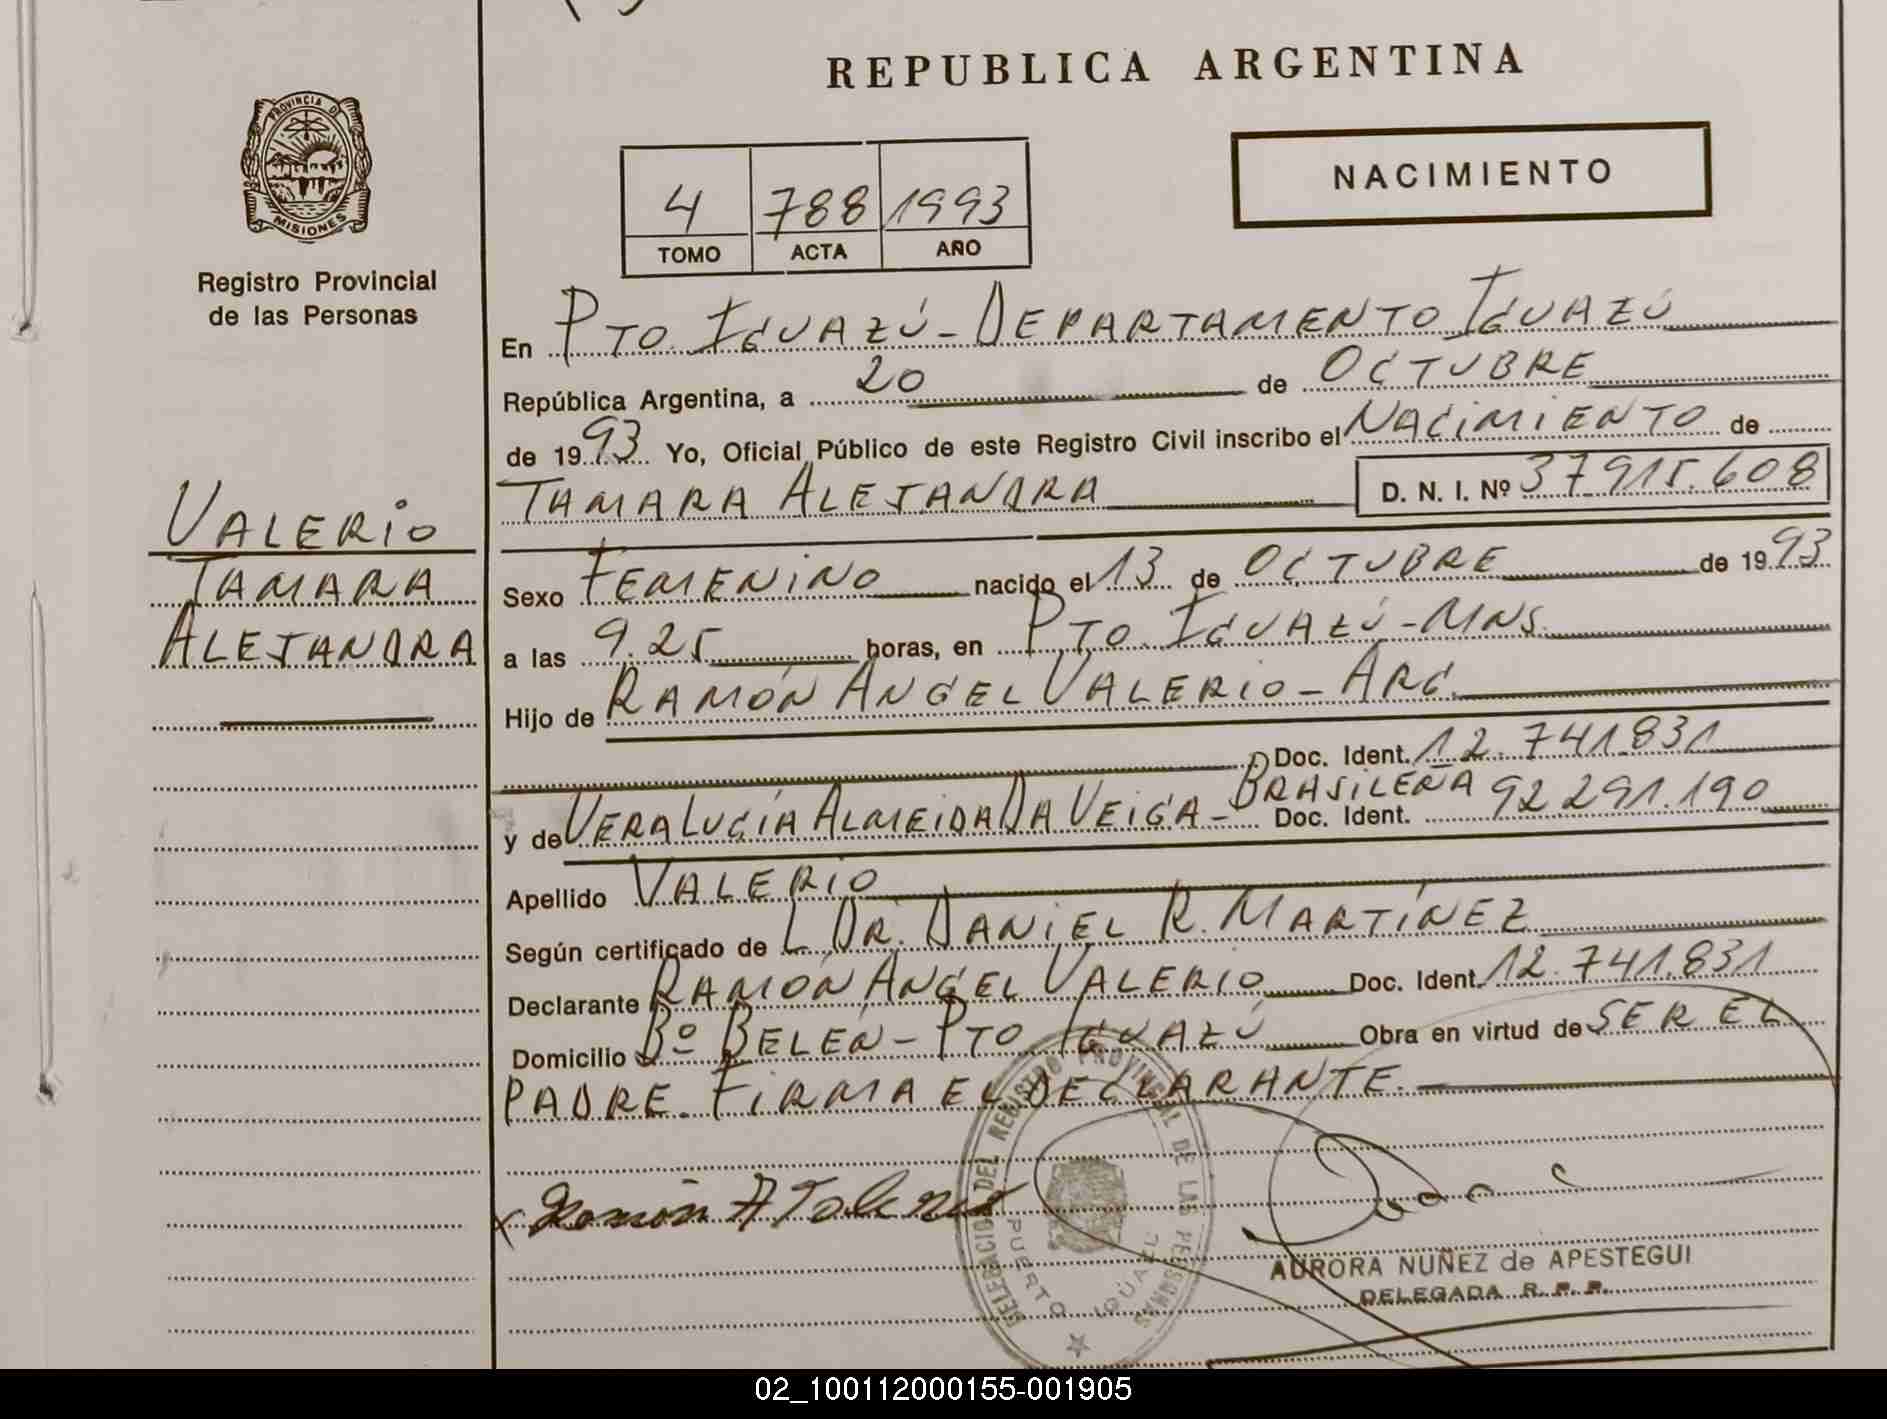 REPUBLICA ARGENTINA
PROVINCIA DE
MISIONES
Registro Provincial
de las Personas
NACIMIENTO
4 788 1993
TOMO ACTA AÑO
En PTO. IGUAZÚ - DEPARTAMENTO IGUAZÚ
República Argentina, a 20 de OCTUBRE
de 1993 Yo, Oficial Público de este Registro Civil inscribo el NACIMIENTO de
TAMARA ALEJANDRA D. N. I. Nº 37915.608
VALERIO
TAMARA
ALEJANDRA
Sexo FEMENINO nacido el 13 de OCTUBRE de 1993
a las 9.25 horas, en PTO. IGUAZÚ - MNS.
Hijo de RAMÓN ANGEL VALERIO - ARG.
Doc. Ident. 12.741.831
y de VERA LUCÍA ALMEIDA DA VEIGA - BRASILEÑA Doc. Ident. 92.291.190
Apellido VALERIO
Según certificado de L DR. DANIEL R. MARTÍNEZ
Declarante RAMÓN ANGEL VALERIO Doc. Ident. 12.741.831
Domicilio Bº BELÉN - PTO IGUAZÚ Obra en virtud de SER EL
PADRE. FIRMA EL DECLARANTE.
x Ramón A Valerio
DELEGACION DEL REGISTRO PROVINCIAL DE LAS PERSONAS
PUERTO IGUAZU
AURORA NUÑEZ de APESTEGUI
DELEGADA R. P. P.
02_100112000155-001905